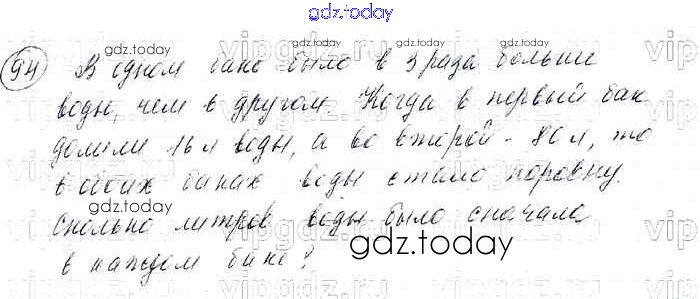 gdz.today
94 В одном баке было в 3 раза больше
воды, чем в другом. Когда в первый бак
долили 16 л воды, а во второй - 80 л, то
в обоих баках воды стало поровну.
Сколько литров воды было сначала
в каждом баке?
gdz.today
gdz.today
gdz.today
gdz.today
gdz.today
gdz.today
gdz.today